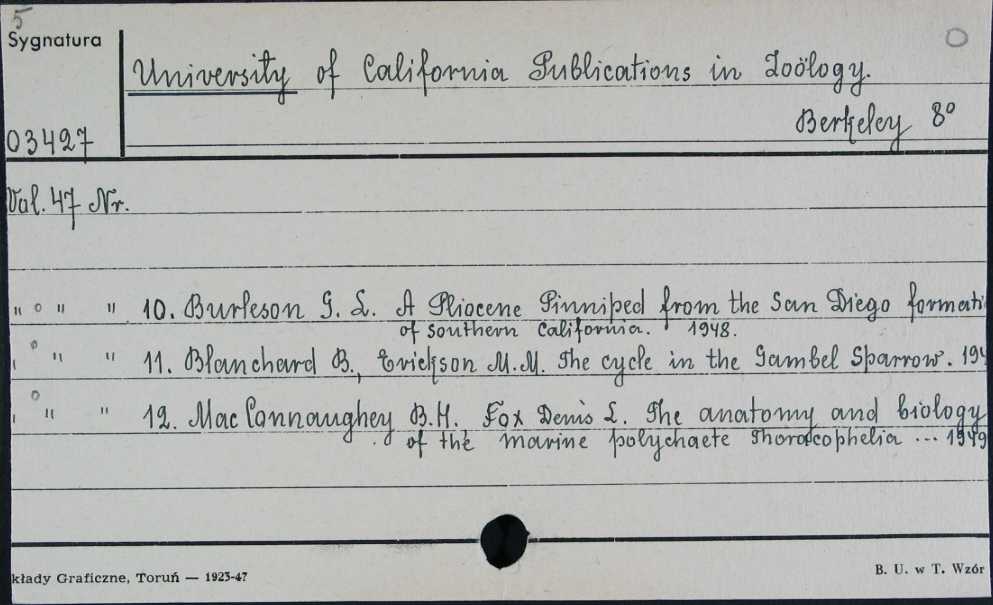 5
Sygnatura
University of California Publications in Zoölogy.
Berkeley 8°
03427
Vol. 47 Nr.
" ° " " 10. Burleson G. L. A Pliocene Pinniped from the San Diego formati
of southern California. 1948.
° " " 11. Blanchard B., Erickson M.M. The cycle in the Gambel Sparrow. 194
° " " 12. Mac Connaughey B.H. Fox Denis L. The anatomy and biology
of the marine polychaete Thoracophelia ... 1949
kłady Graficzne, Toruń — 1923-47
B. U. w T. Wzór